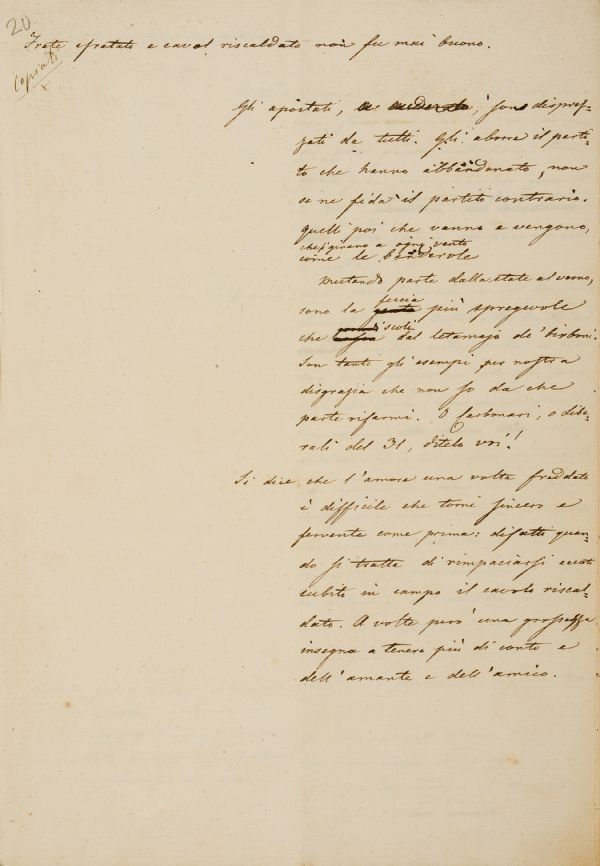 20
Frate sfratato e cavol riscaldato non fu mai buono.
Copiato
x
Gli apostati, sono disprez=
zati da tutti. Gli aborre il parti=
to che hanno abbandonato, non
se ne fida il partito contrario.
Quelli poi che vanno e vengono,
che girano a ogni vento
come le banderole
mutando parte dalla state al verno,
feccia
sono la gente più spregevole
scoli
che dal letamajo de' birboni.
Son tanti gli esempi per nostra
disgrazia che non so da che
parte rifarmi. O Carbonari, o libe=
rali del 31, ditelo voi!
Si dice che l'amore una volta freddato
è difficile che torni sincero e
fervente come prima: difatti quan=
do si tratta di rimpaciarsi
subito in campo il cavolo riscal=
dato. A volte però una grossezza
insegna a tenere più di conto e
dell'amante e dell'amico.